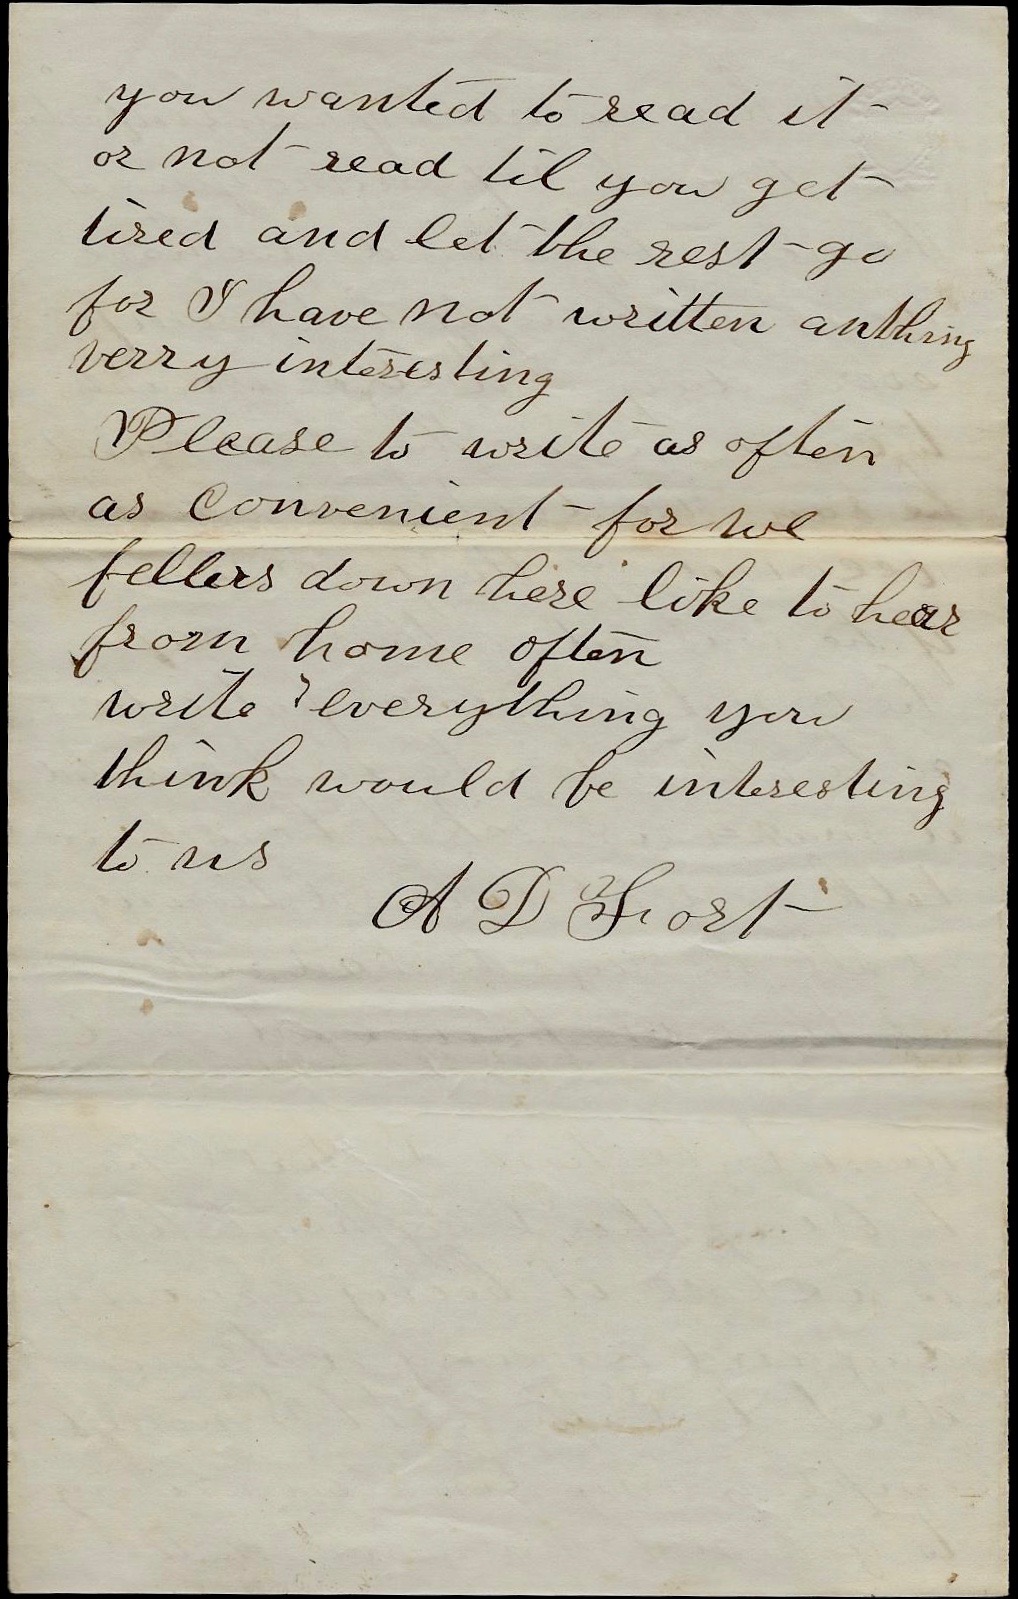 you wanted to read it
or not read til you get
tired and let the rest go
for I have not written anthing
verry interesting
Please to write as often
as convenient for we
fellers down here like to hear
from home often
write everything you
think would be interesting
to us
A D Fort